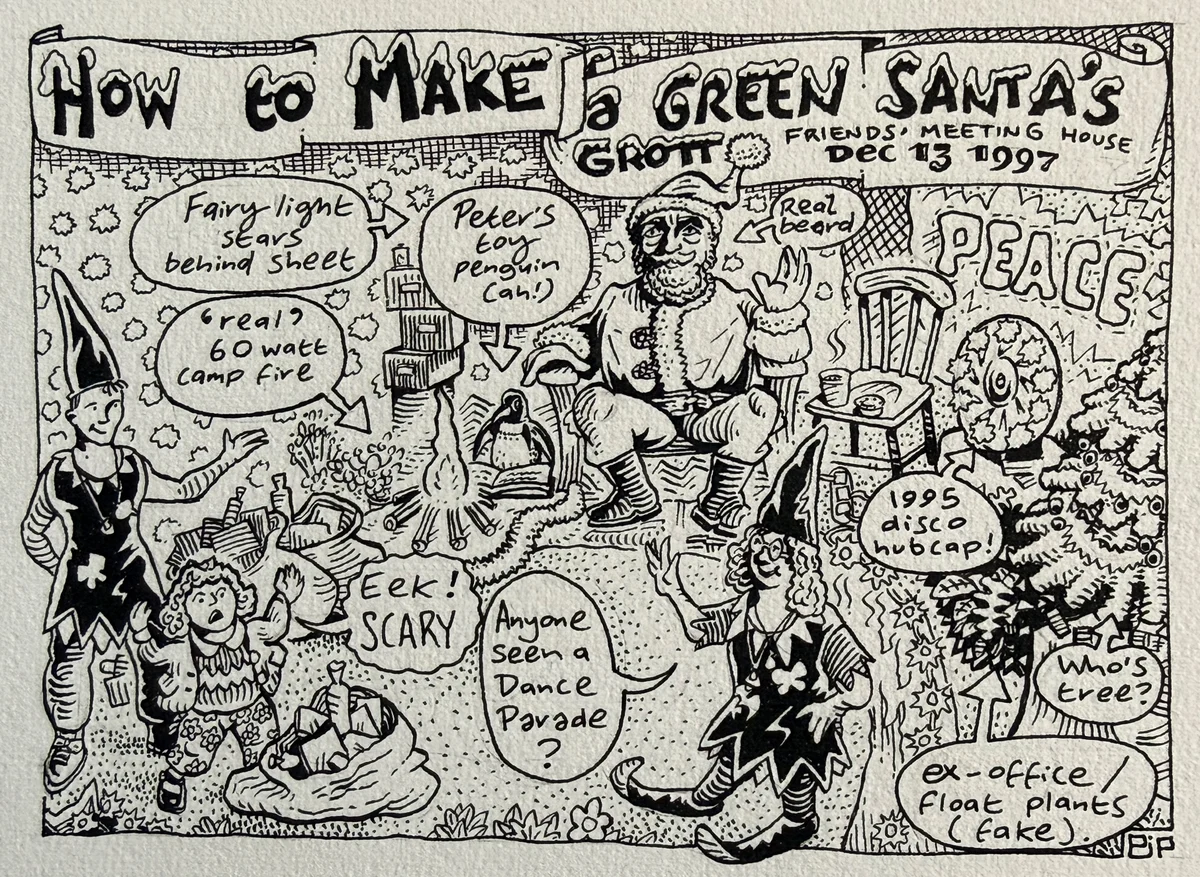 How to MAKE a GREEN SANTA'S
GROTT
FRIENDS' MEETING HOUSE
DEC 13 1997
Fairy light
stars
behind sheet
Peter's
toy
penguin
(ah!)
Real
beard
PEACE
'real'
60 watt
camp fire
1995
disco
hubcap!
Eek!
SCARY
Anyone
seen a
Dance
Parade
?
Who's
tree?
ex-office/
float plants
(fake).
PJP